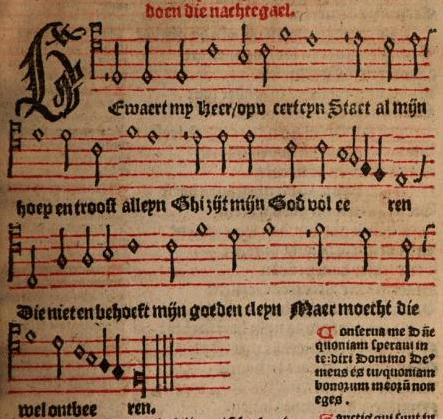 doen die nachtegael.
BEwaert my Heer/opv certeyn Staet al mijn
hoep en troost alleyn Ghi zijt mijn God vol ce ren
Die niet en behoeft mijn goeden cleyn Maer moecht die
wel ontbee ren.
Conserua me Dñe
quoniam speraui in
te: dixi Domino De⁹
meus es tu/quoniam
bonorum meorū non
eges.